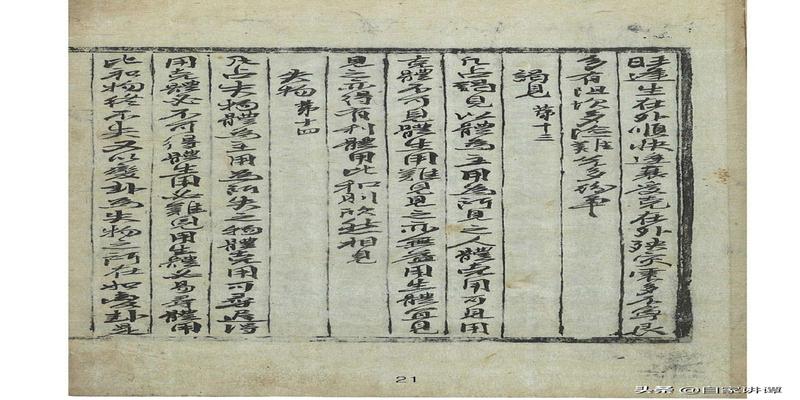 生在外順快逢衰受克在外
多有阻坎多險難多
謁見 第十三
凡占謁見以體為主用為所見之人體克用可見用
克體不可見體生用難見見之而無益用生體可見
見之而得有利體用比和則歡然相見
失物 第十四
凡占失物體為主用為所失之物體克用可尋遲得
用克體必不可得體生用必難見用生體必易尋體用
比和物終不失又以變卦為失物之所在如變卦是
21
头条 @自家讲谭